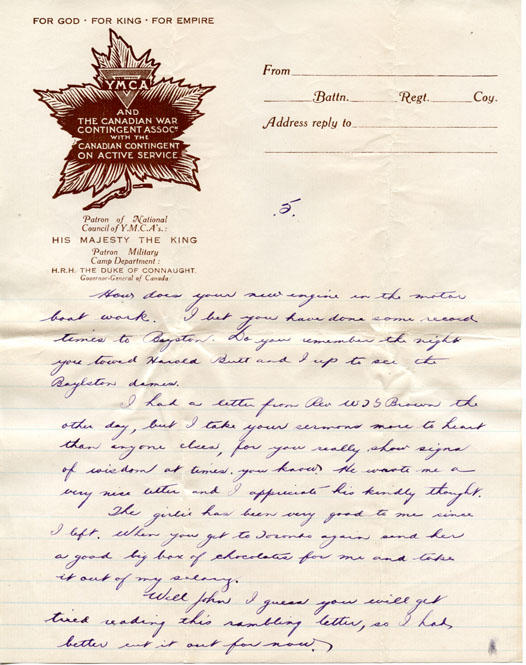 FOR GOD · FOR KING · FOR EMPIRE
YMCA
AND
THE CANADIAN WAR
CONTINGENT ASSOCN
WITH THE
CANADIAN CONTINGENT
ON ACTIVE SERVICE
Patron of National
Council of Y.M.C.A's.:
HIS MAJESTY THE KING
Patron Military
Camp Department:
H.R.H. THE DUKE OF CONNAUGHT.
Governor-General of Canada
From
Battn. Regt. Coy.
Address reply to
5.
How does your new engine in the motor
boat work. I bet you have done some record
times to Boyston. Do you remember the night
you towed Harold Butt and I up to see the
Boylston dames.
I had a letter from Rev W T G Brown the
other day, but I take your sermons more to heart
than anyone elses, for you really show signs
of wisdom at times. you know? He wrote me a
very nice letter and I appriciate his kindly thought.
The girlie has been very good to me since
I left. When you get to Toronto again send her
a good big box of chocolates for me and take
it out of my salary.
Well John I guess you will get
tired reading this rambling letter, so I had
better cut it out for now.